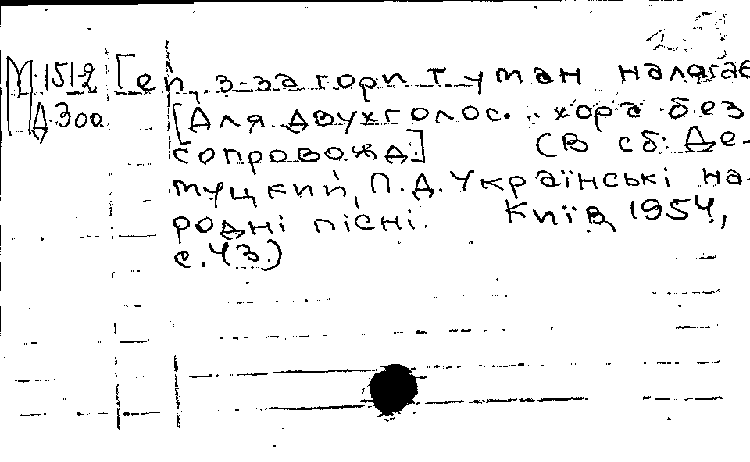 М.151-2 Гей, з-за гори туман налягає
Д.30а [Для двухголос. хора без
сопровожд.] (В сб: Де-
муцкий, П.Д. Українські на-
родні пісні. Київ, 1954,
с.43.)